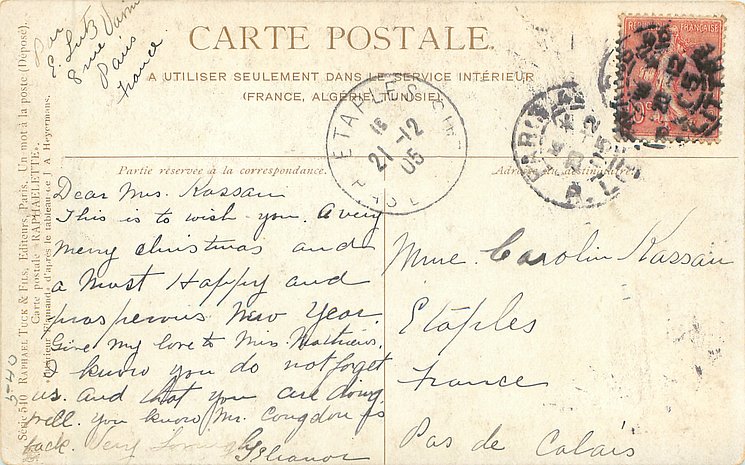 Par
E. Lutz
8 rue
Paris
France.
CARTE POSTALE.
A UTILISER SEULEMENT DANS LE SERVICE INTÉRIEUR
(FRANCE, ALGÉRIE, TUNISIE)
Partie réservée à la correspondance.
Adresse du destinataire.
FRANÇAISE
ETAPLES
21-12
05
PARIS
Dear Mrs. Kassau
This is to wish you. A very
merry christmas and
a Most Happy and
prosperous New Year.
Give my love to Miss. Mathews.
I know you do not forget
us. and that you are doing
well. you know Mr. Congdon is
back. Very Lovingly
Mme. Carolin Kassau
Etaples
France
Pas de Calais
Série 540 RAPHAEL TUCK & FILS, Editeurs, Paris. Un mot à la poste (Déposé).
Carte postale «RAPHAELETTE».
d'après le tableau de J A Heyermans.
5-40